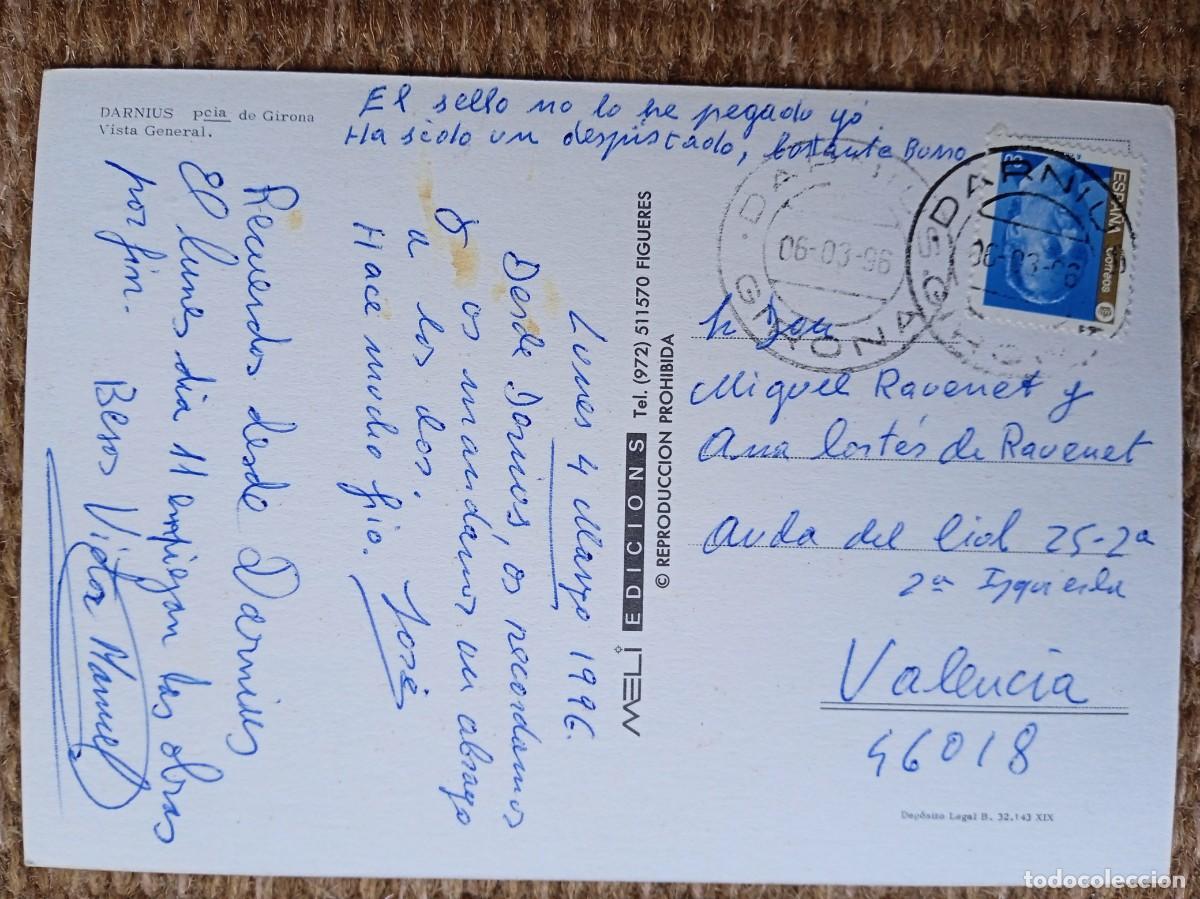 DARNIUS pcia de Girona
Vista General.
El sello no lo he pegado yó.
Ha sido un despistado, bastante Burro
Lunes 4 Marzo 1996.
Desde Darnius, os recordamos
y os mandamos un abrazo
a los dos.
Hace mucho frio. José
Recuerdos desde Darnius
El lunes dia 11 empiezan las obras
por fin. Besos Victor Manuel
MELI EDICIONS Tel. (972) 511570 FIGUERES
© REPRODUCCION PROHIBIDA
DARNIUS
06-03-96
GIRONA
DARNIUS
06-03-96
GIRONA
ESPAÑA
Correos
Sr Don
Miguel Ravenet y
Ana Cortés de Ravenet
Avda del Cid 25-2ª
2ª Izquierda
Valencia
46018
Depósito Legal B. 32.143 XIX
todocoleccion